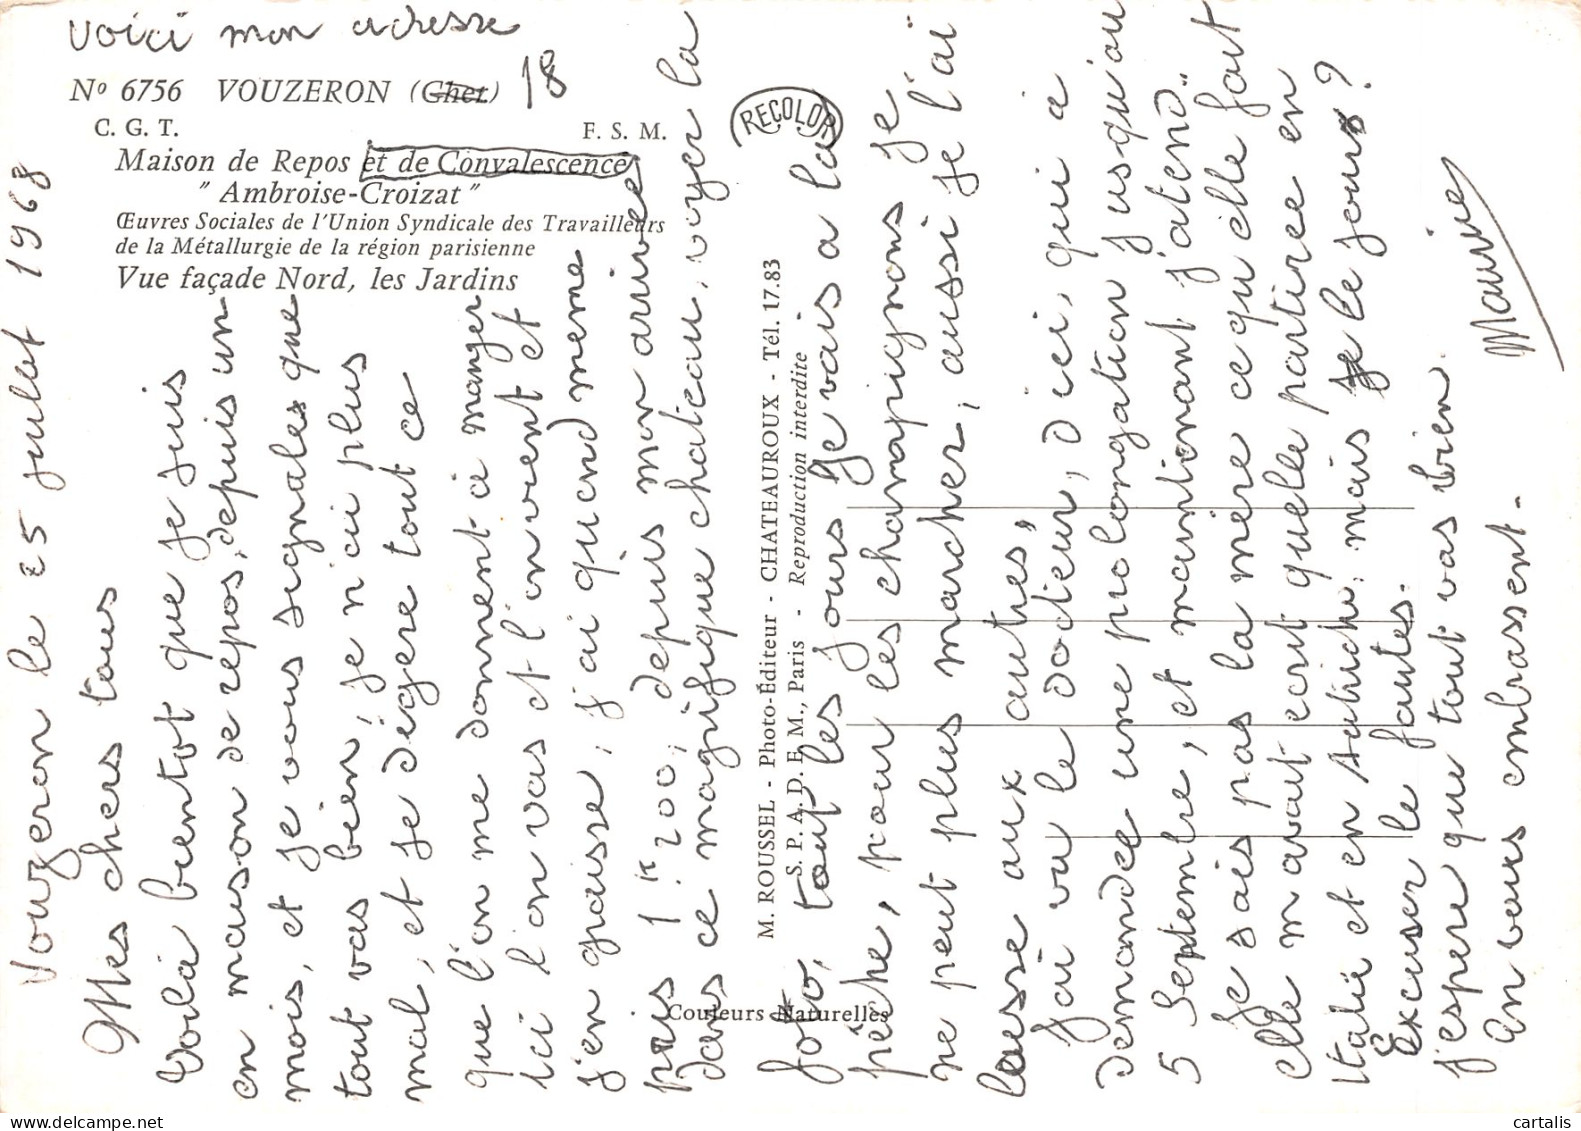 Voici mon adresse
N° 6756 VOUZERON (Cher) 18
C. G. T. F. S. M.
Maison de Repos et de Convalescence
" Ambroise-Croizat "
Œuvres Sociales de l'Union Syndicale des Travailleurs
de la Métallurgie de la région parisienne
Vue façade Nord, les Jardins
RECOLOR
M. ROUSSEL - Photo-Éditeur - CHATEAUROUX - Tél. 17.83
S. P. A. D. E. M., Paris - Reproduction interdite
Couleurs Naturelles
Vouzeron le 25 juillet 1968
Mes chers tous
Voilà bientot que je suis
en maison de repos, depuis un
mois, et je vous signales que
tout vas bien, je n'ai plus
mal, et je digere tout ce
que l'on me donnent à manger
ici l'on vas et l'on vient et
j'en graisse, j'ai quand meme
pris 1k200, depuis mon arrivée
dans ce magnifique chateau, voyer la
foto, tout les jours je vais a la
pêche, pour les champignons je
ne peut plus marcher, aussi je l'ai
laisse aux autres,
j'ai vu le docteur, d'ici, qui à
demandée une prolongation jusqu'au
5 Septembre, et maintionant j'atend..
je sais pas la mère ce qu'elle fait
elle m'avait ecrit quelle partiree en
Italie et en autriche, mais le jours ?
Excuser le fautes.
j'espere que tout vas bien
on vous embrassent.
Maurice